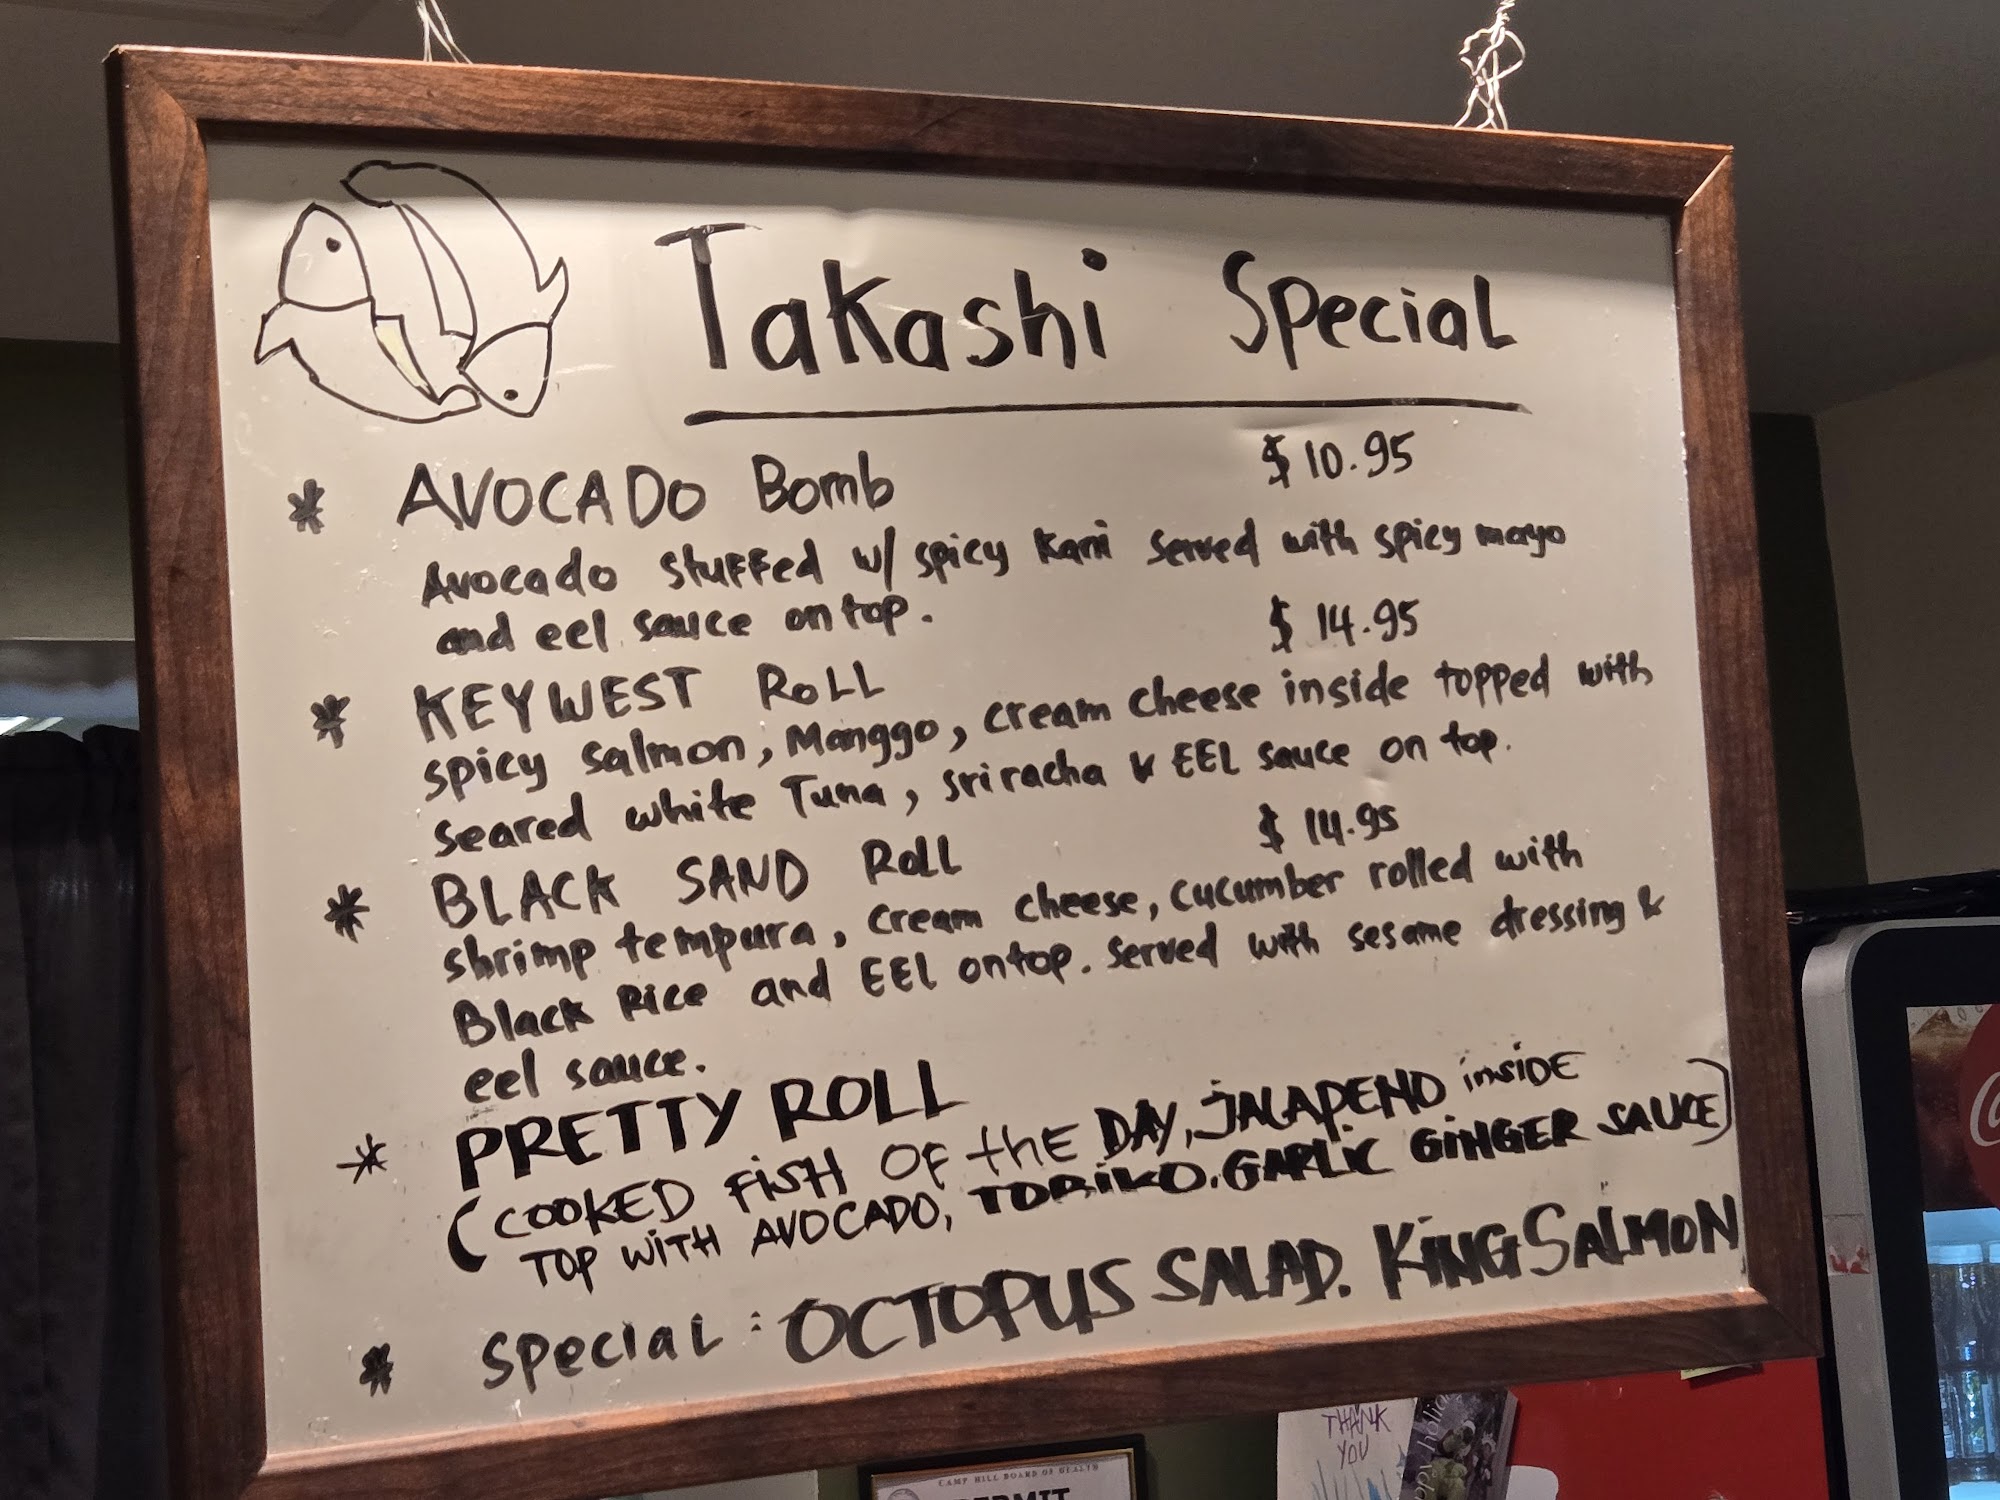 Takashi Special
* AVOCADO Bomb $10.95
Avocado stuffed w/ spicy kani served with spicy mayo
and eel sauce on top.
* KEYWEST ROLL $14.95
spicy salmon, Manggo, cream cheese inside topped with
seared white Tuna, sriracha & EEL sauce on top.
* BLACK SAND Roll $14.95
shrimp tempura, cream cheese, cucumber rolled with
Black Rice and EEL on top. served with sesame dressing &
eel sauce.
* PRETTY ROLL
(COOKED FISH OF the DAY, JALAPENO inSIDE
TOP WITH AVOCADO, TOBIKO. GARLIC GINGER SAUCE)
* Special: OCTOPUS SALAD. KING SALMON
THANK
YOU
CAMP HILL BOARD OF HEALTH
PERMIT